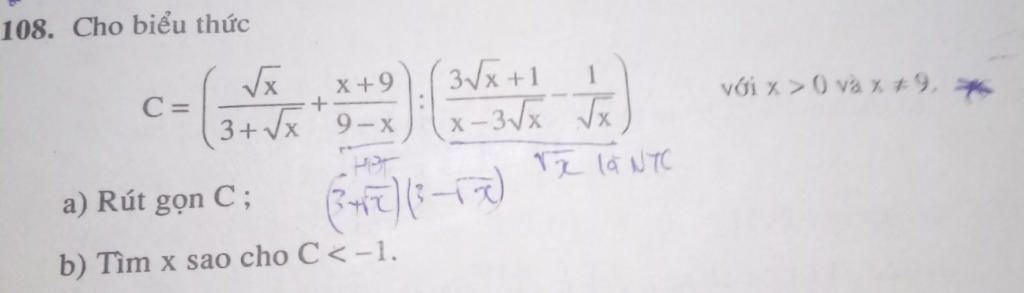 108. Cho biểu thức
C = (√x / (3 + √x) + (x + 9) / (9 − x)) : ((3√x + 1) / (x − 3√x) − 1 / √x) với x > 0 và x ≠ 9.
HĐT √x là NTC
a) Rút gọn C ; (3+√x)(3−√x)
b) Tìm x sao cho C < −1.